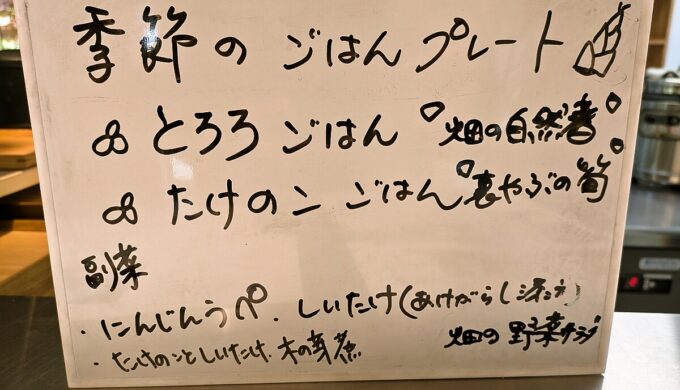 季節の ごはん プレート
とろろ ごはん 畑の自然薯
たけのこ ごはん 裏やぶの筍
副菜
・にんじんラペ ・しいたけ(あげがらし添え)
・たけのことしいたけ 木の芽煮
畑の野菜サラダ